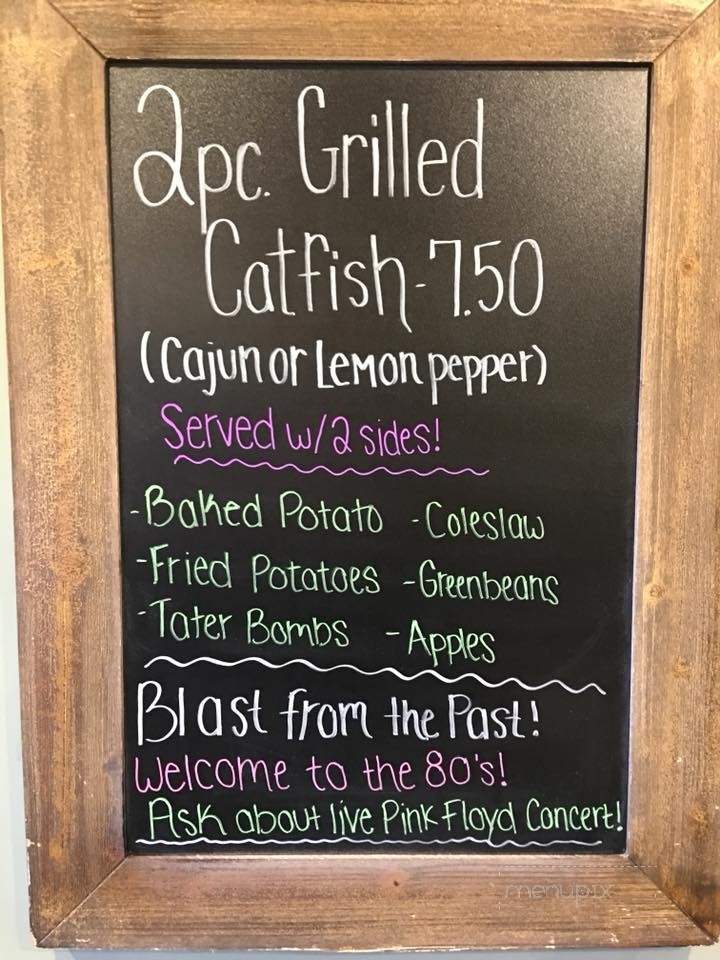 2pc. Grilled
Catfish-7.50
(Cajun or Lemon pepper)
Served w/2 sides!
-Baked Potato -Coleslaw
-Fried Potatoes -Greenbeans
-Tater Bombs -Apples
Blast from the Past!
Welcome to the 80's!
Ask about live Pink Floyd Concert!
menupix